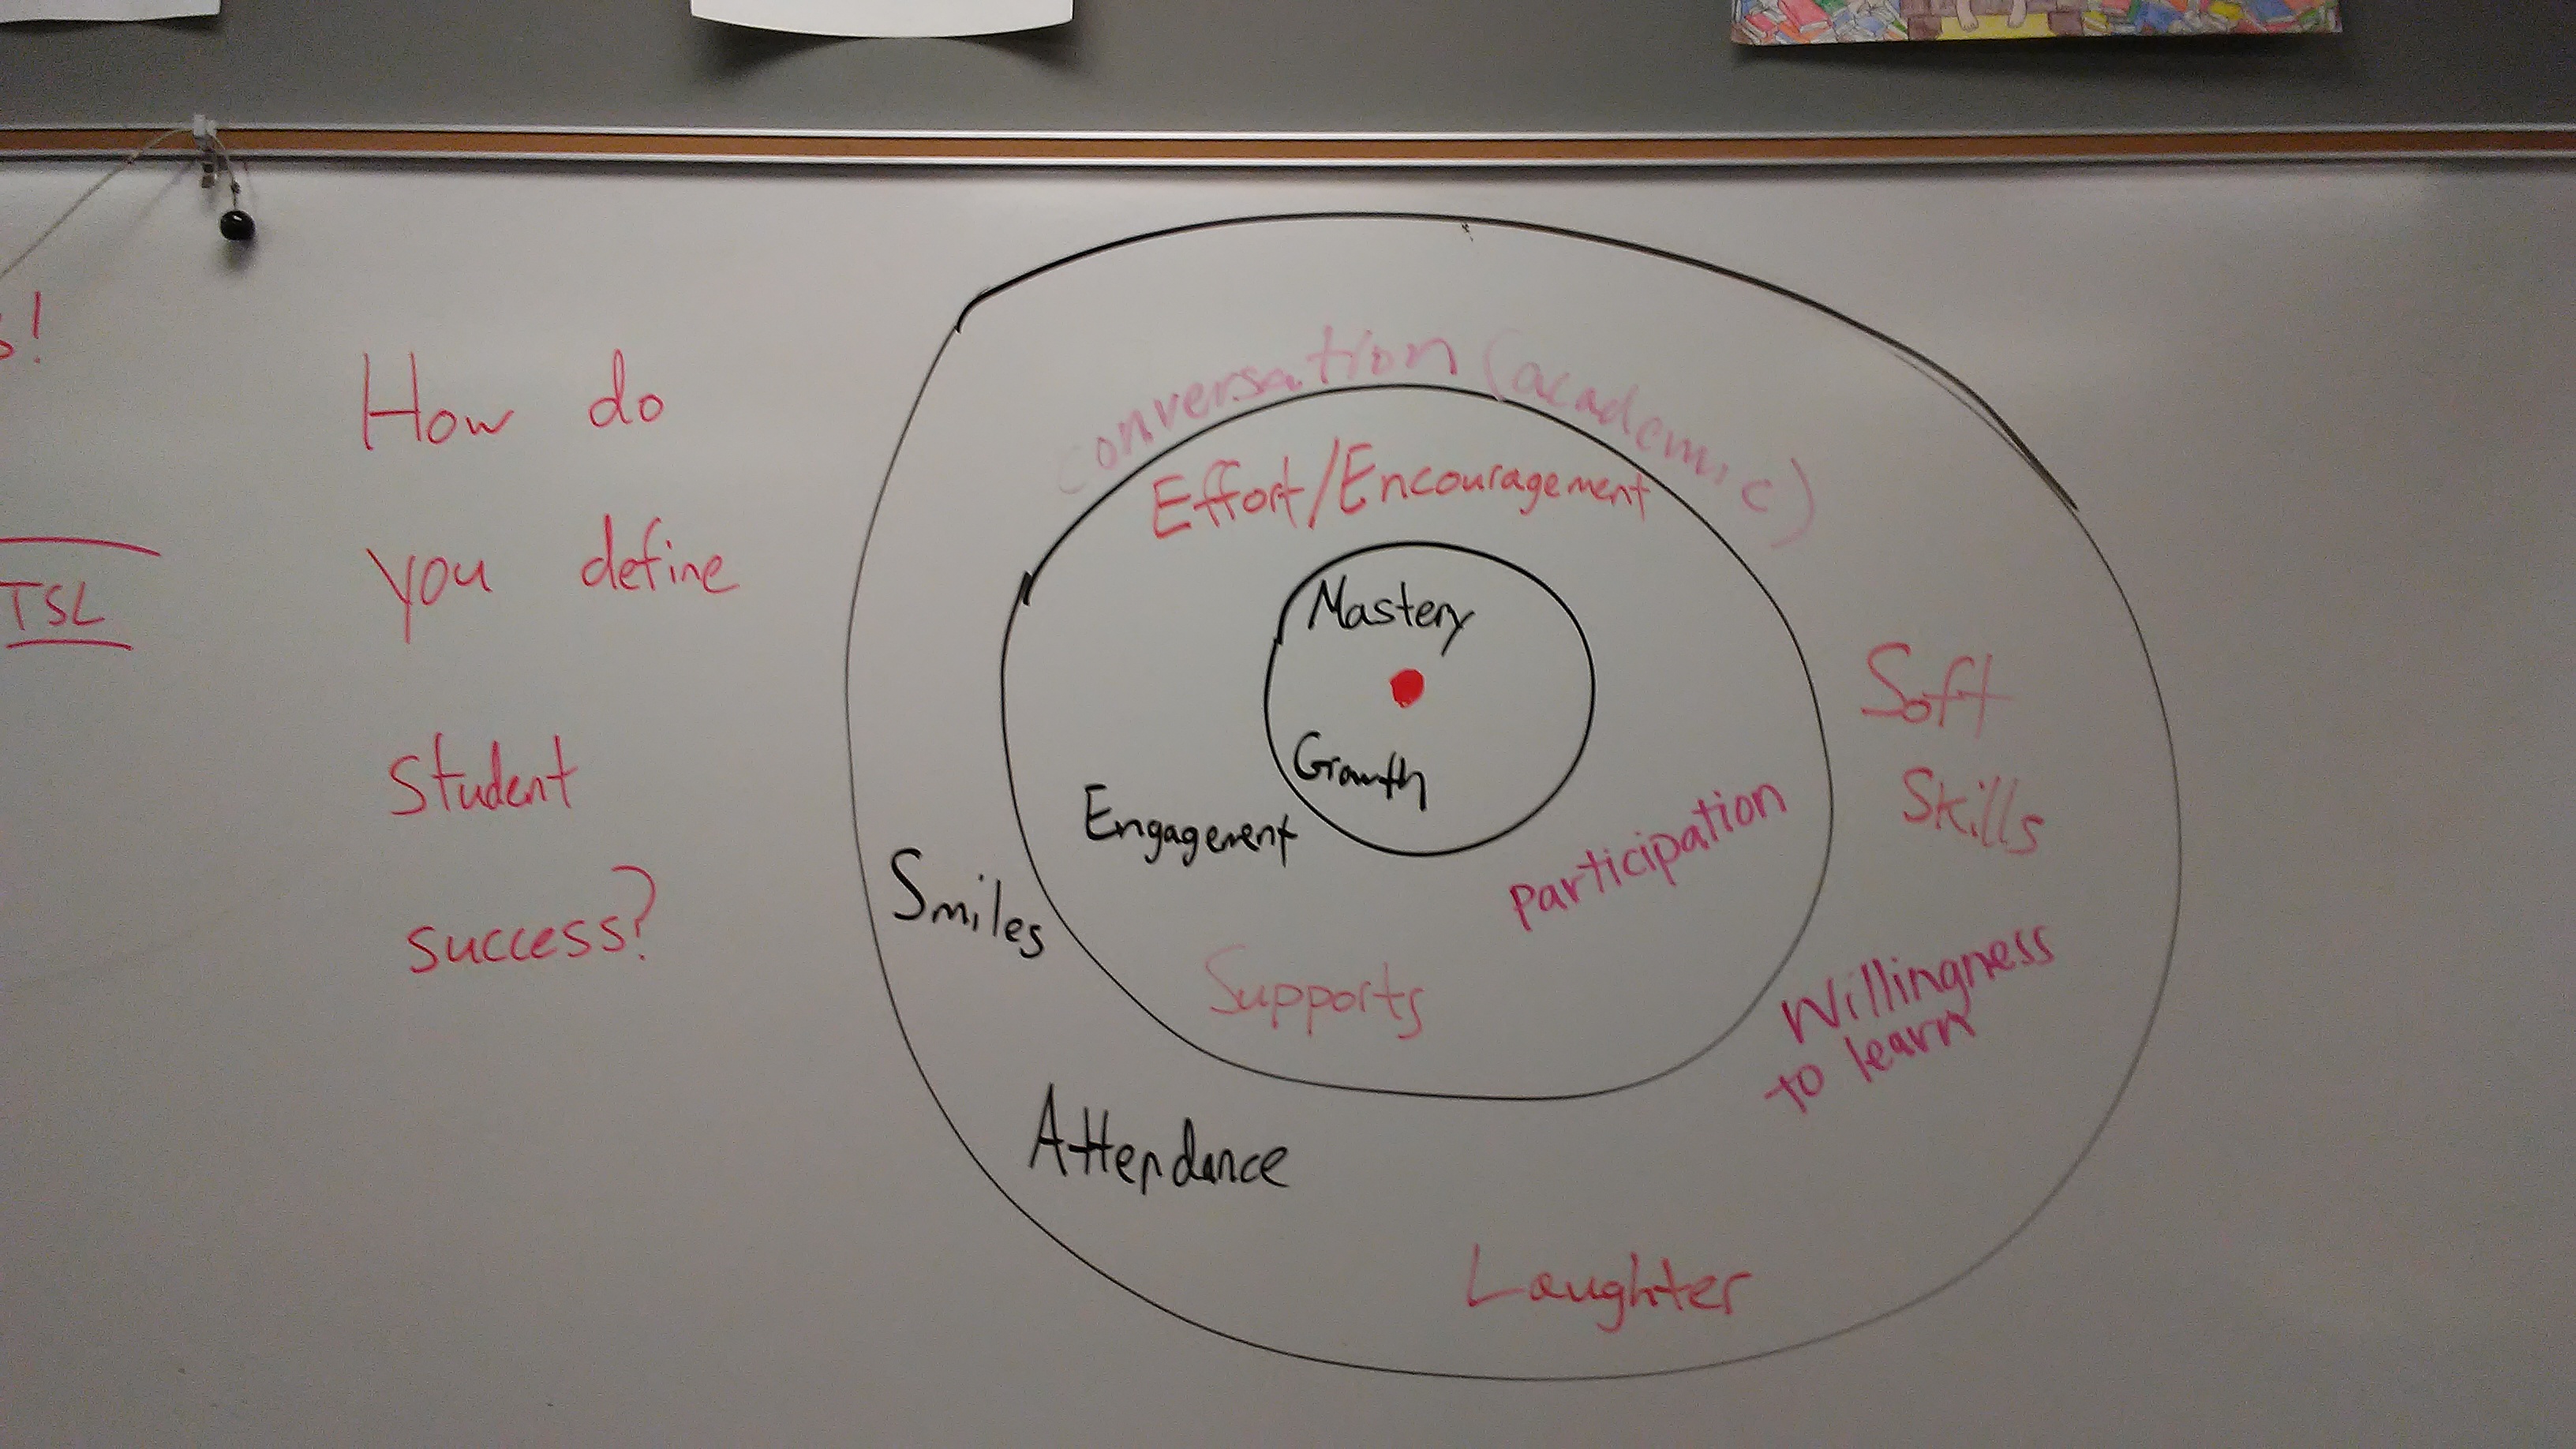 s!
TSL
How do
you define
student
success?
Conversation (academic)
Effort/Encouragement
Mastery
Growth
Engagement
participation
Supports
Smiles
Soft
Skills
Willingness
to learn
Attendance
Laughter